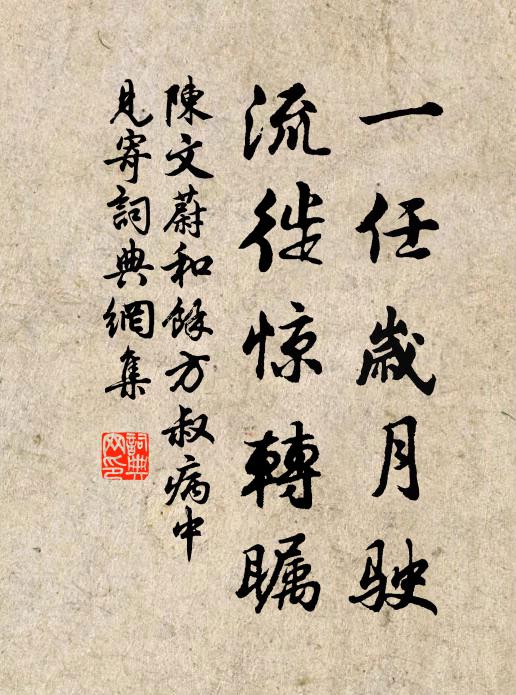 一任歲月駛
流徙惊轉瞩
陳文蔚和馀方叔病中
見寄詞典網集
詞典网印